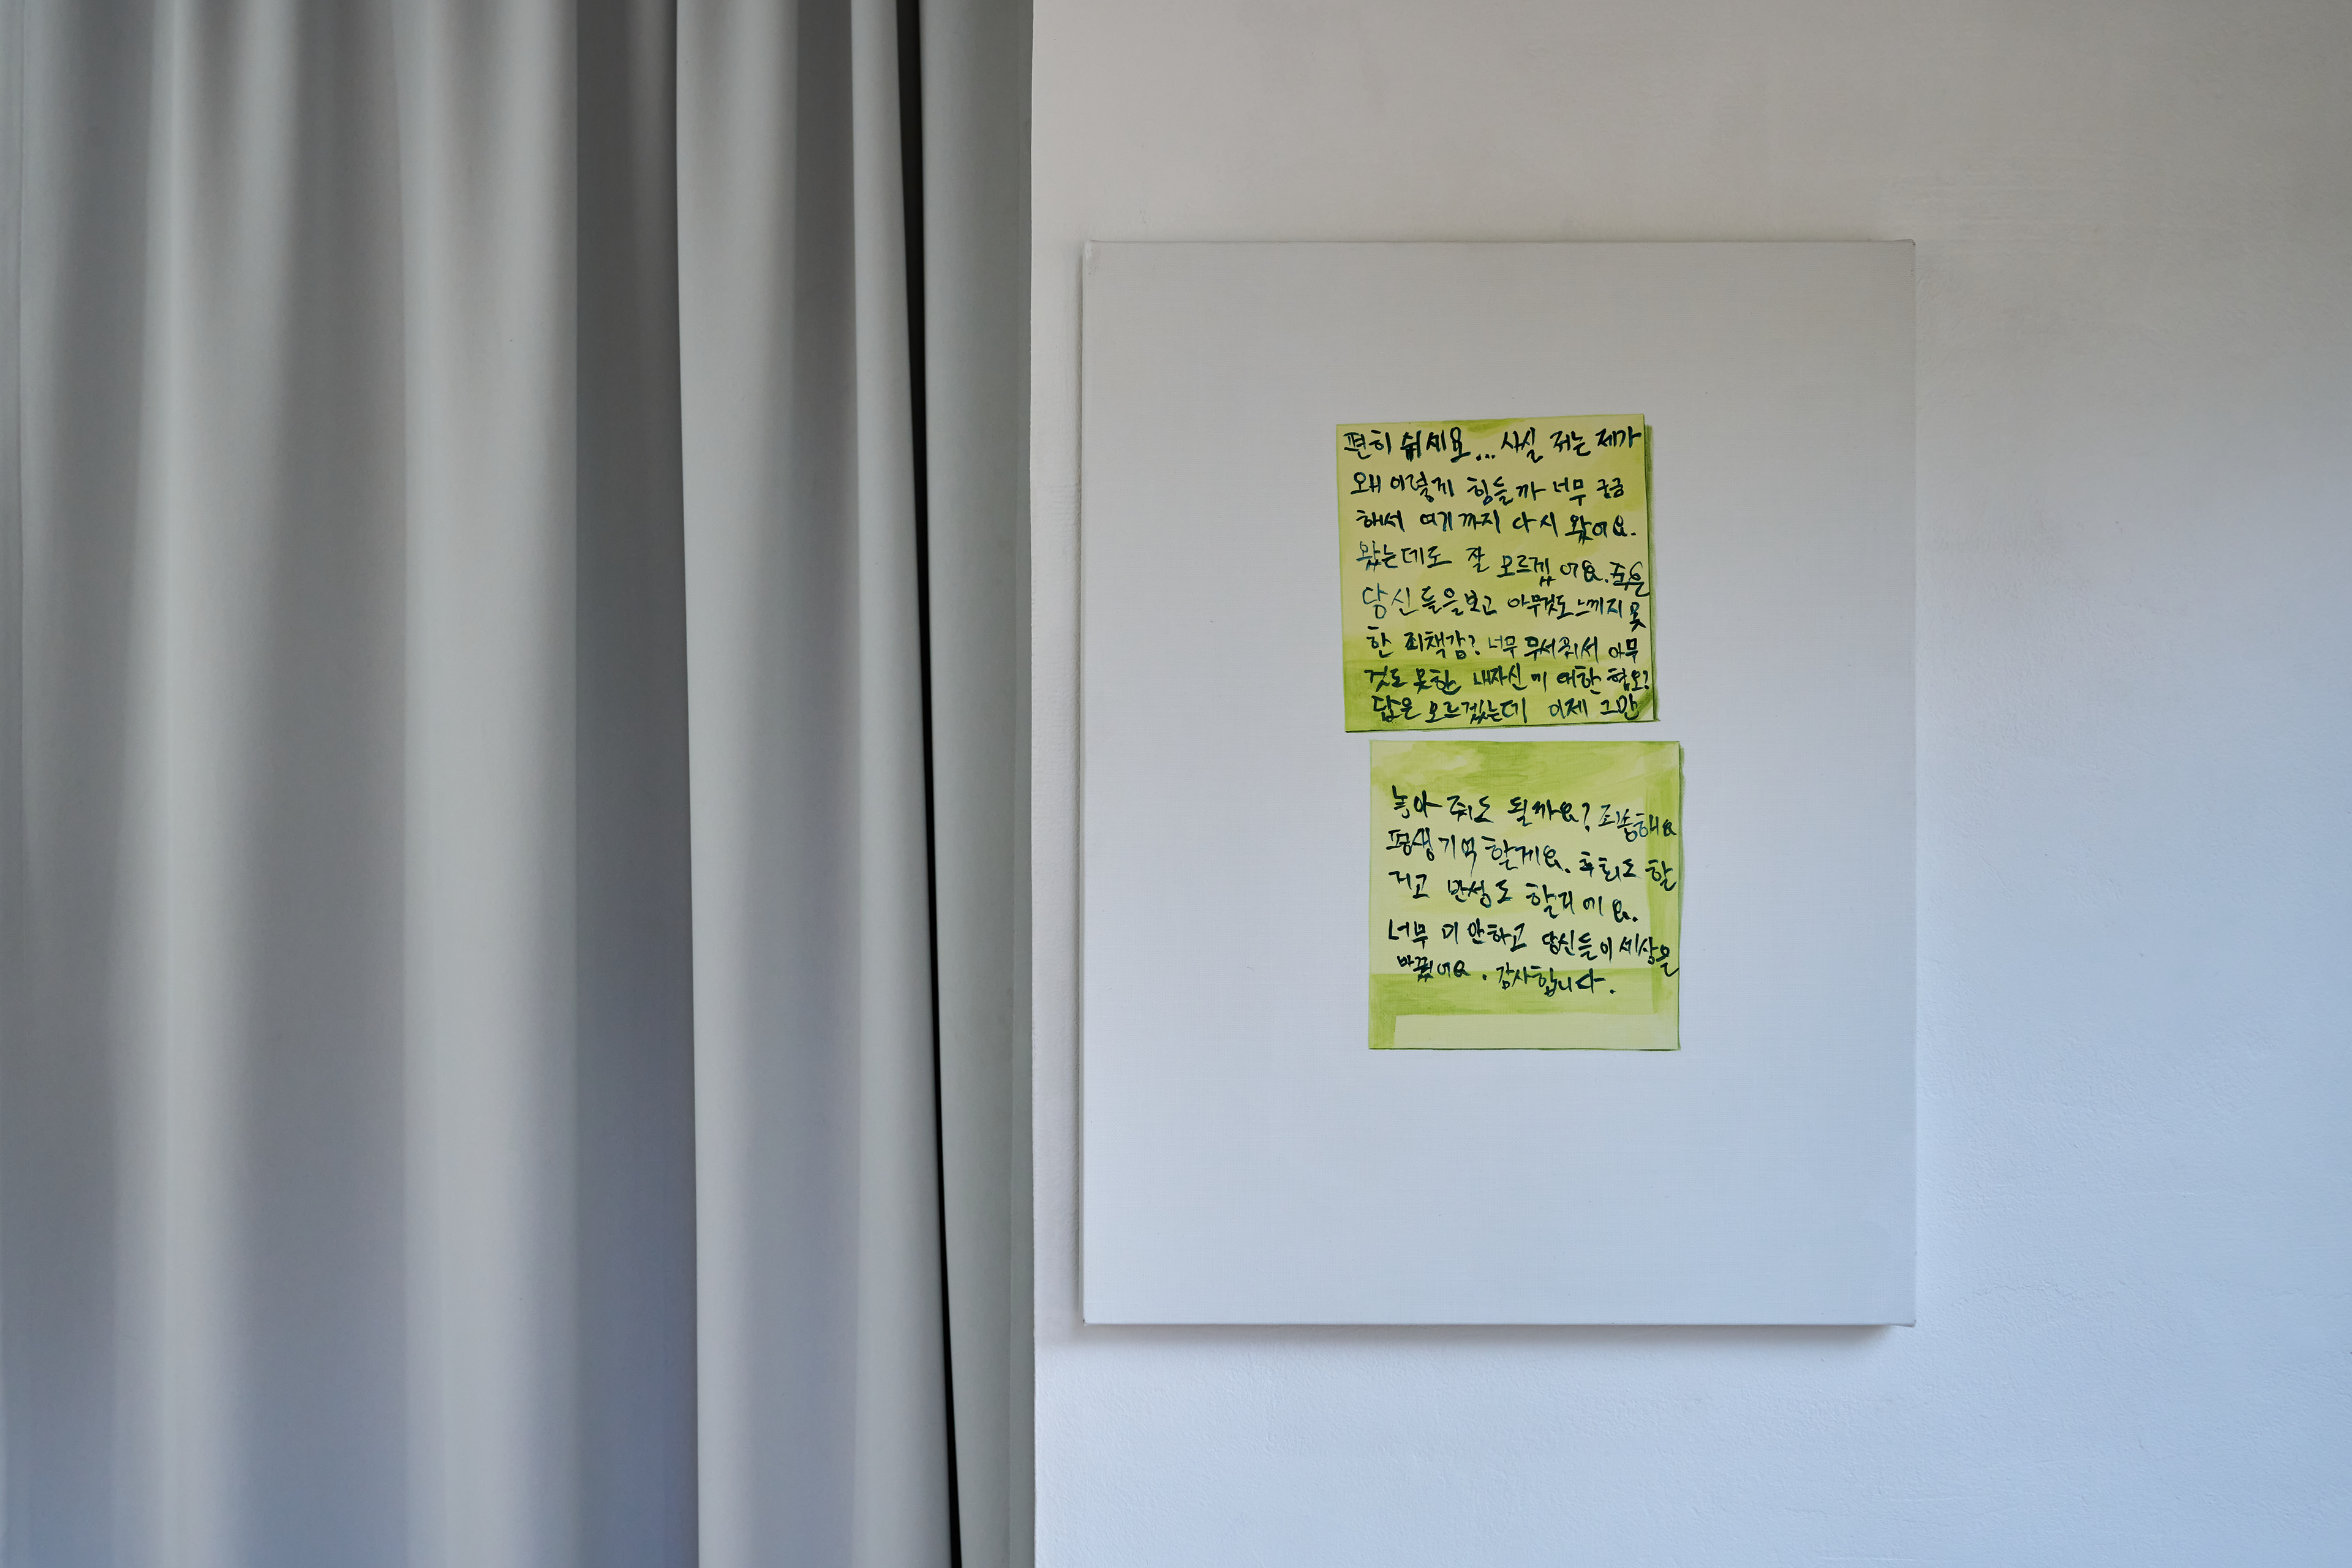 편히 쉬세요... 사실 저는 제가
왜 이렇게 힘들까 너무 궁금
해서 여기까지 다시 왔어요.
왔는데도 잘 모르겠어요. 죽은
당신들을 보고 아무것도 느끼지 못
한 죄책감? 너무 무서워서 아무
것도 못한 내자신에 대한 혐오?
답은 모르겠는데 이제 그만
놓아 줘도 될까요? 죄송해요
평생 기억할게요. 후회도 할
거고 반성도 할거에요.
너무 미안하고 당신들이 세상을
바꿨어요. 감사합니다.